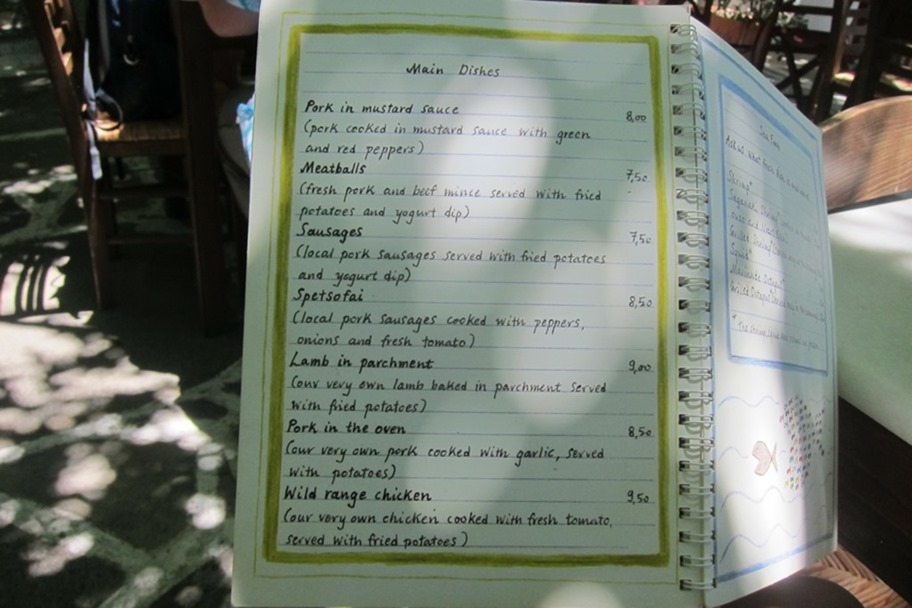 Main Dishes
Pork in mustard sauce 8,00
(pork cooked in mustard sauce with green
and red peppers)
Meatballs 7,50
(fresh pork and beef mince served with fried
potatoes and yogurt dip)
Sausages 7,50
(local pork sausages served with fried potatoes
and yogurt dip)
Spetsofai 8,50
(local pork sausages cooked with peppers,
onions and fresh tomato)
Lamb in parchment 9,00
(our very own lamb baked in parchment served
with fried potatoes)
Pork in the oven 8,50
(our very own pork cooked with garlic, served
with potatoes)
Wild range chicken 9,50
(our very own chicken cooked with fresh tomato,
served with fried potatoes)
Shrimp*
Squid*